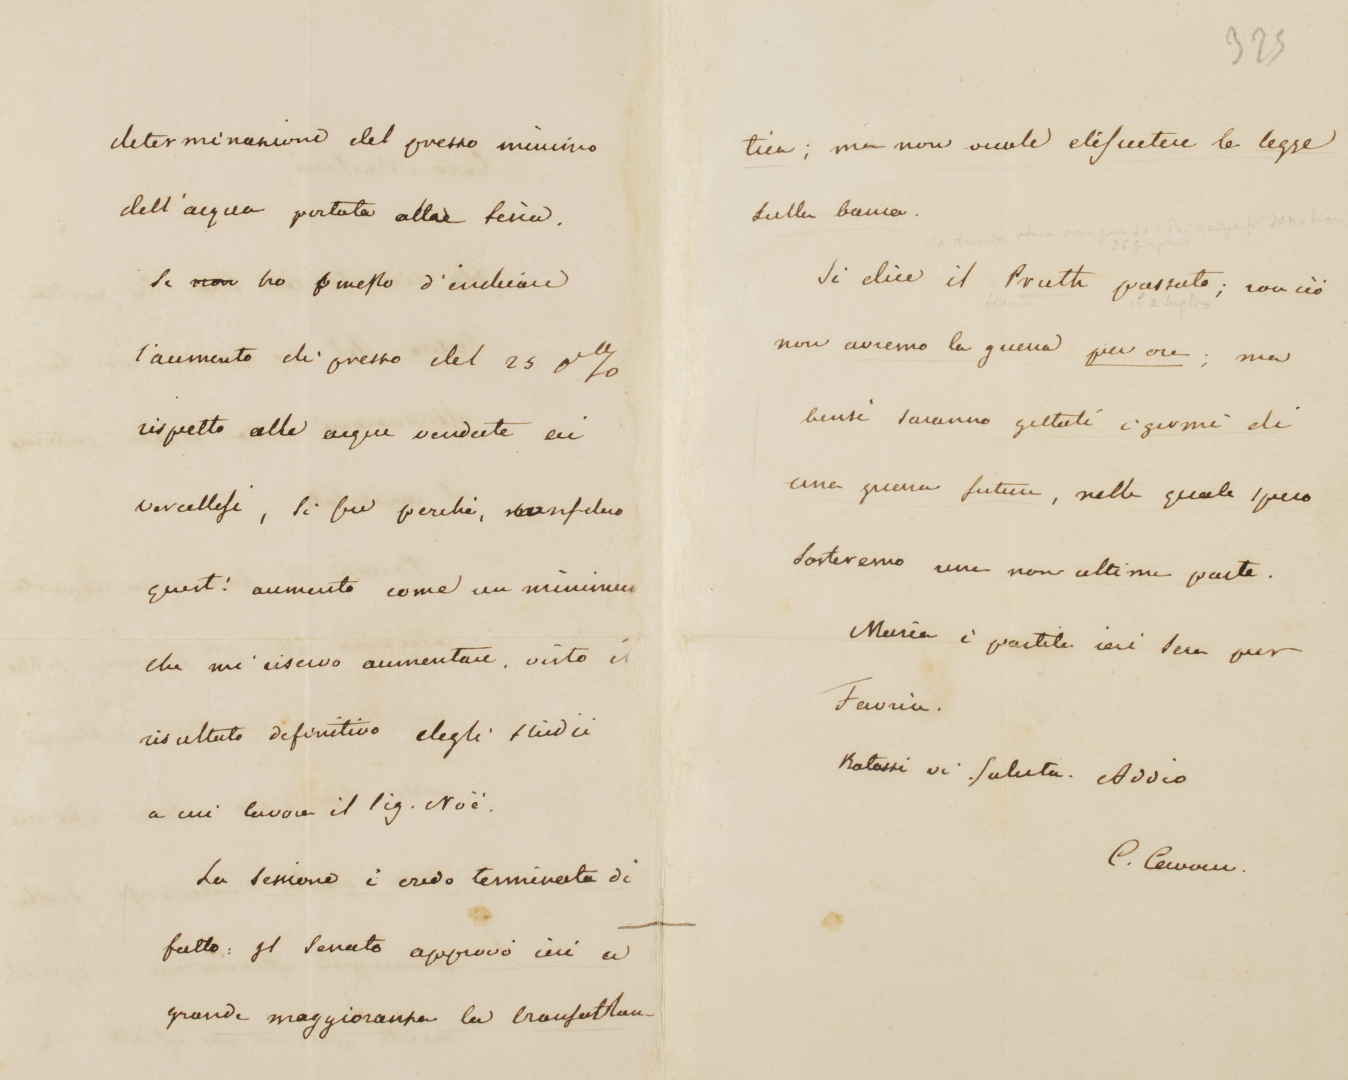 determinazione del prezzo minimo
dell'acqua portata alla Sesia.
Se non ho pmesso d'indicare
l'aumento di prezzo del 25 p%
rispetto alle acque vendute ai
vercellesi, si fu perché,
quest' aumento come un minimum
che mi riservo aumentare, visto il
risultato definitivo degli studii
a cui lavora il Sig. Noè.
La Sessione è credo terminata di
fatto: Il Senato approvò ieri a
grande maggioranza la transatlan-
325
tica; ma non vuole discutere la legge
sulla banca.
la Russia stava occupando i Principati Danubiani
26 giugno
Si dice il Pruth passato; con ciò
fiume il 2 luglio
non avremo la guerra per ora; ma
bensì saranno gettati i germi di
una guerra futura, nella quale spero
sosteremo una non ultima parte.
Maria è partita ieri sera per
Favria.
Ratazzi vi saluta. Addio
C. Cavour.